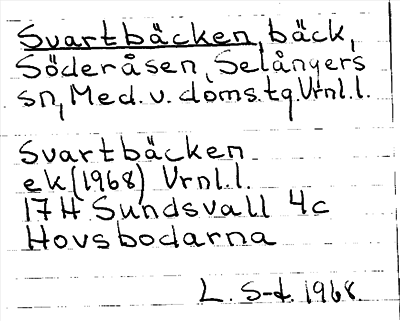 Svartbäcken, bäck,
Söderåsen, Selångers
sn, Med. v. doms. tg. Vrnl. l.
Svartbäcken
ek (1968) Vrnl. l.
17H Sundsvall 4c
Hovsbodarna
L. S-d. 1968.